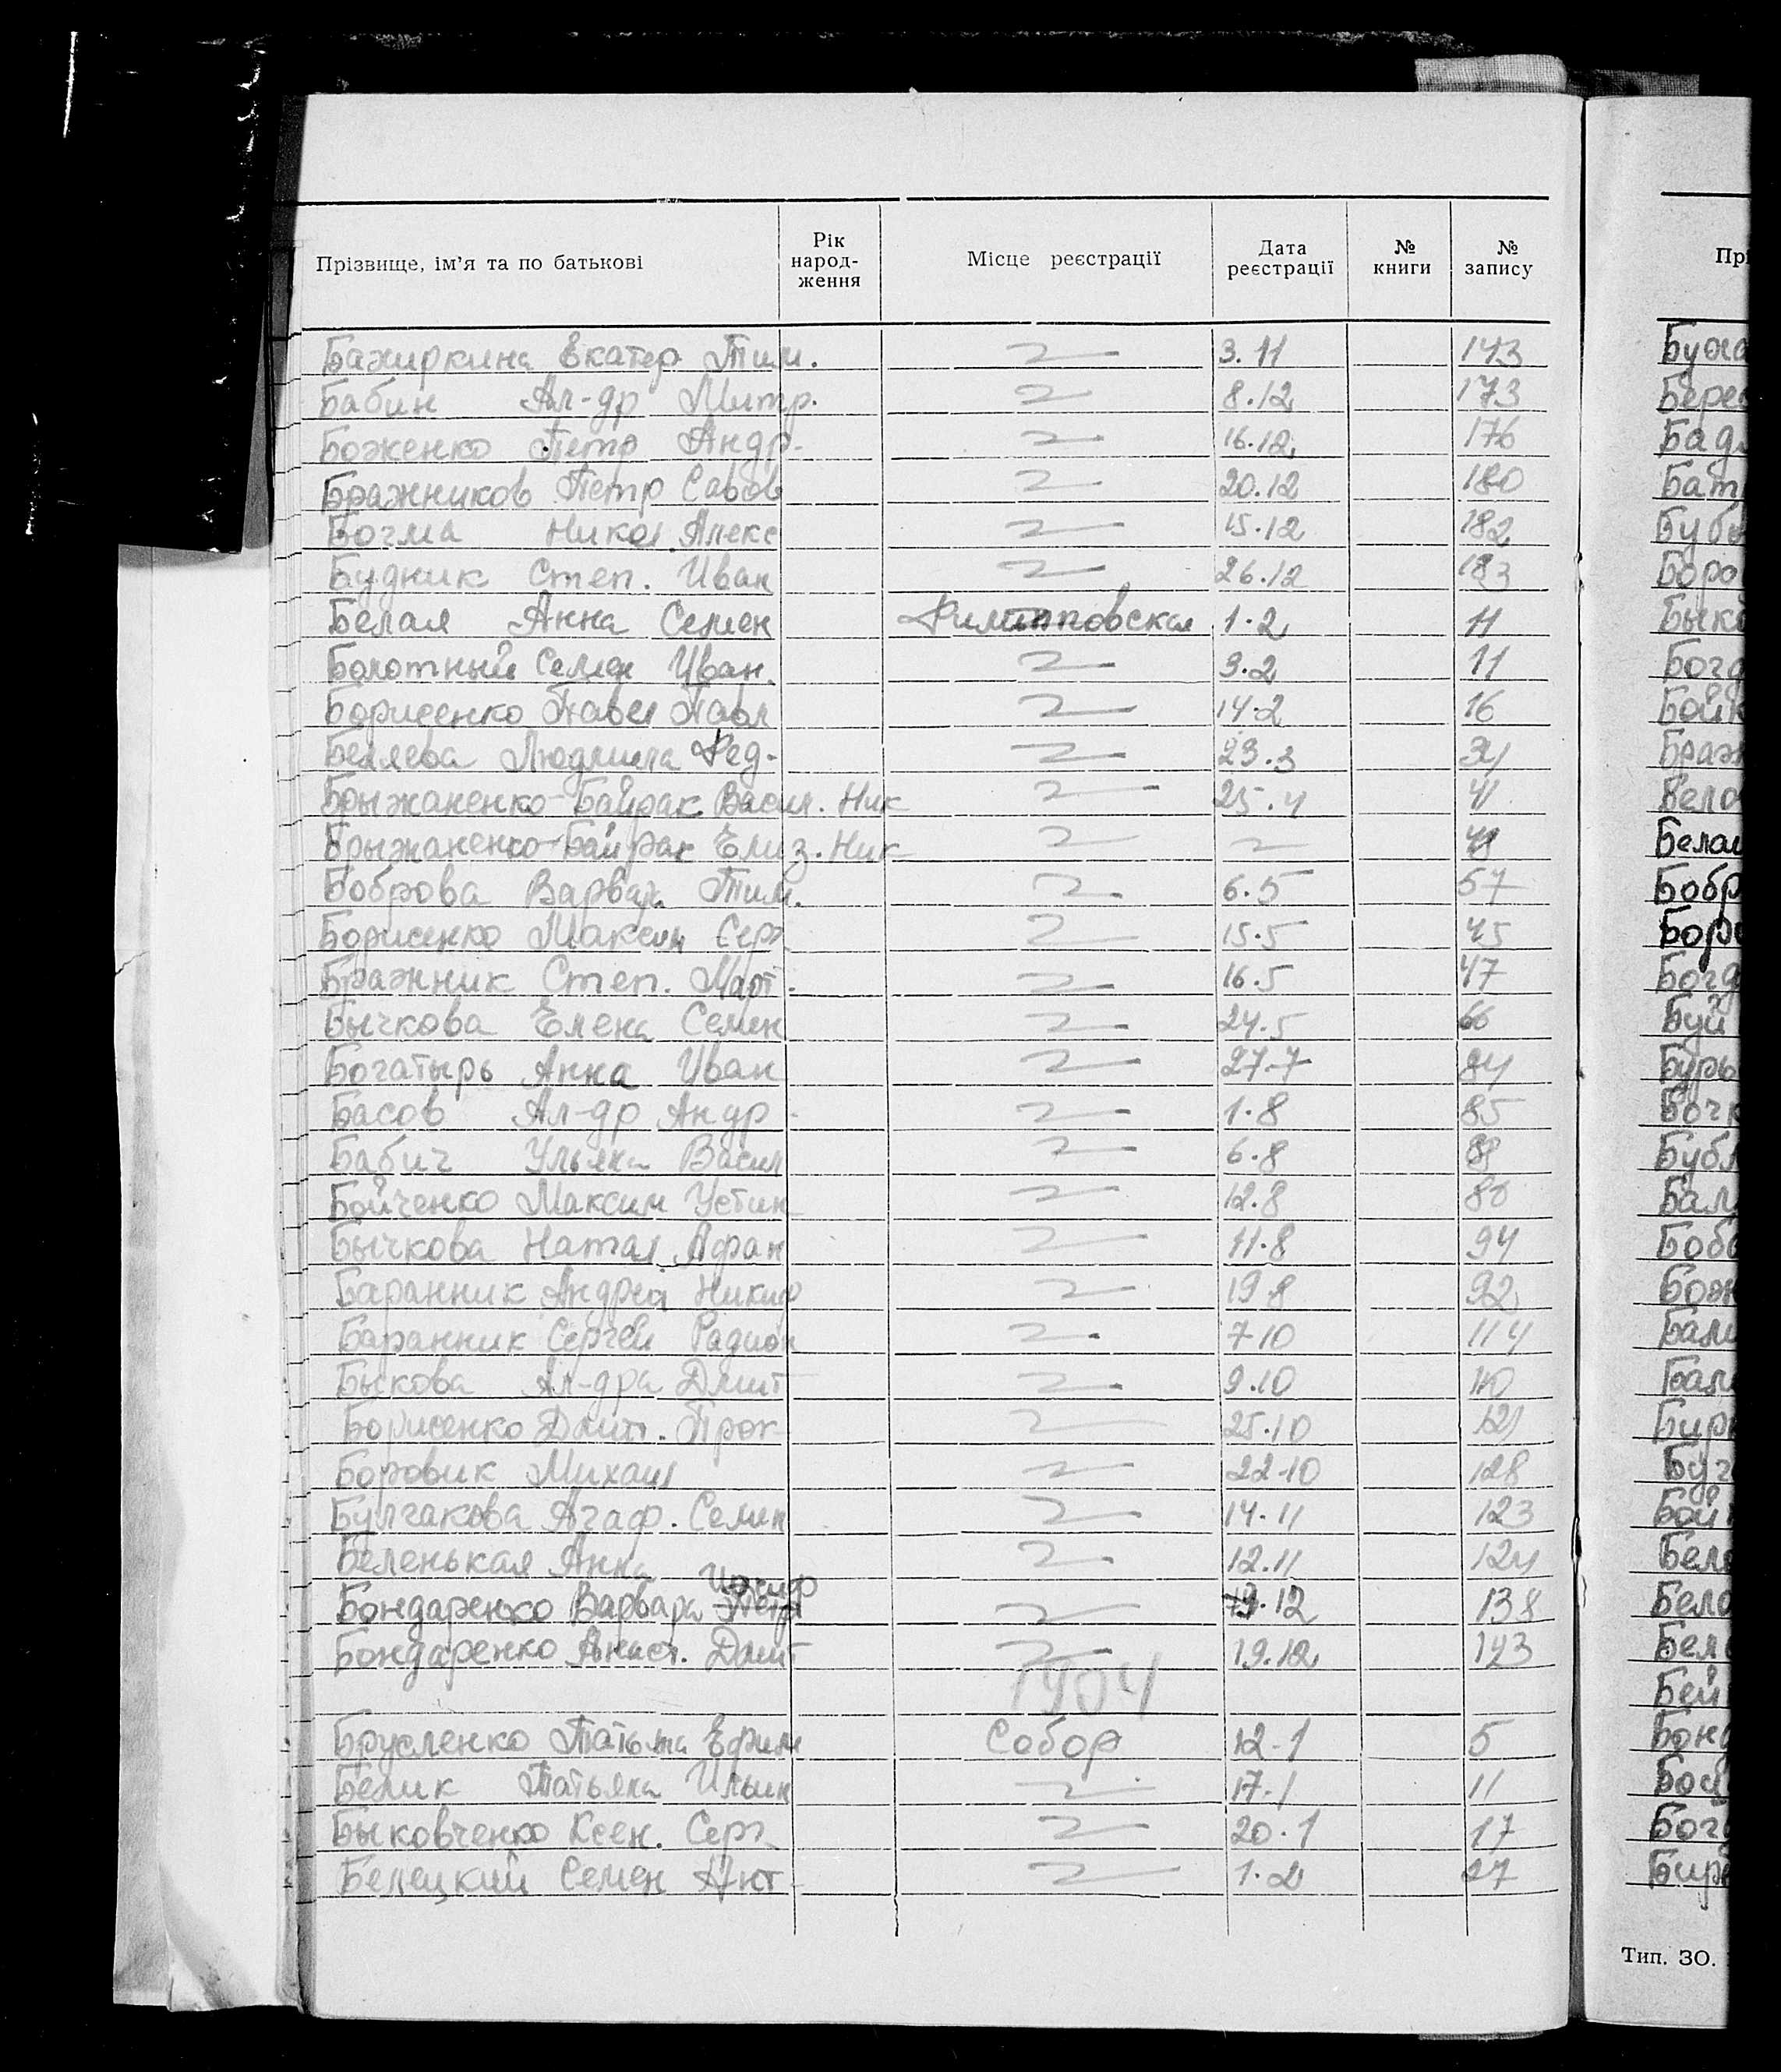 Прізвище, ім'я та по батькові Рік народ-ження Місце реєстрації Дата реєстрації № книги № запису
Бажиркина Екатер Тим. 3.11 143
Бабин Ал-др Митр. 8.12 173
Боженко Петр Андр. 16.12 176
Бражников Петр Савов 20.12 180
Богма Никол Алекс 15.12 182
Будник Степ. Иван 26.12 183
Белая Анна Семен Филипповская 1.2 11
Болотный Семен Иван. 3.2 11
Борисенко Павел Павл 14.2 16
Беляева Людмила Фед. 23.3 34
Брыжаненко-Байрак Васил. Ник 25.4 41
Брыжаненко-Байрак Елиз. Ник
Боброва Варвар. Тим. 6.5 57
Борисенко Максим Серг 15.5 45
Бражник Степ. Март. 16.5 47
Бычкова Елена Семен 24.5 66
Богатырь Анна Иван 27.7 84
Басов Ал-др Андр 1.8 85
Бабич Ульяна Васил 6.8 88
Бойченко Максим Устин 12.8
Бычкова Натал Афан 11.8 94
Баранник Андрей Никиф 19.8 92
Баранник Сергей Радион 7 10 114
Быкова Ал-дра Дмит 9.10 110
Борисенко Дмит. Прок 25.10 121
Боровик Михаил 22-10 128
Булгакова Агаф. Семен 14.11 123
Беленькая Анна 12.11 124
Иосиф
Бондаренко Варвара Петр .12 138
Бондаренко Анаст. Дмит 19.12 143
1904
Брусленко Татьяна Ефим Собор 12-1 5
Белик Татьяна Ильин 17.1 11
Быковченко Ксен. Серг 20.1 17
Белецкий Семен Ант 1.2 27
Тип. ЗО.